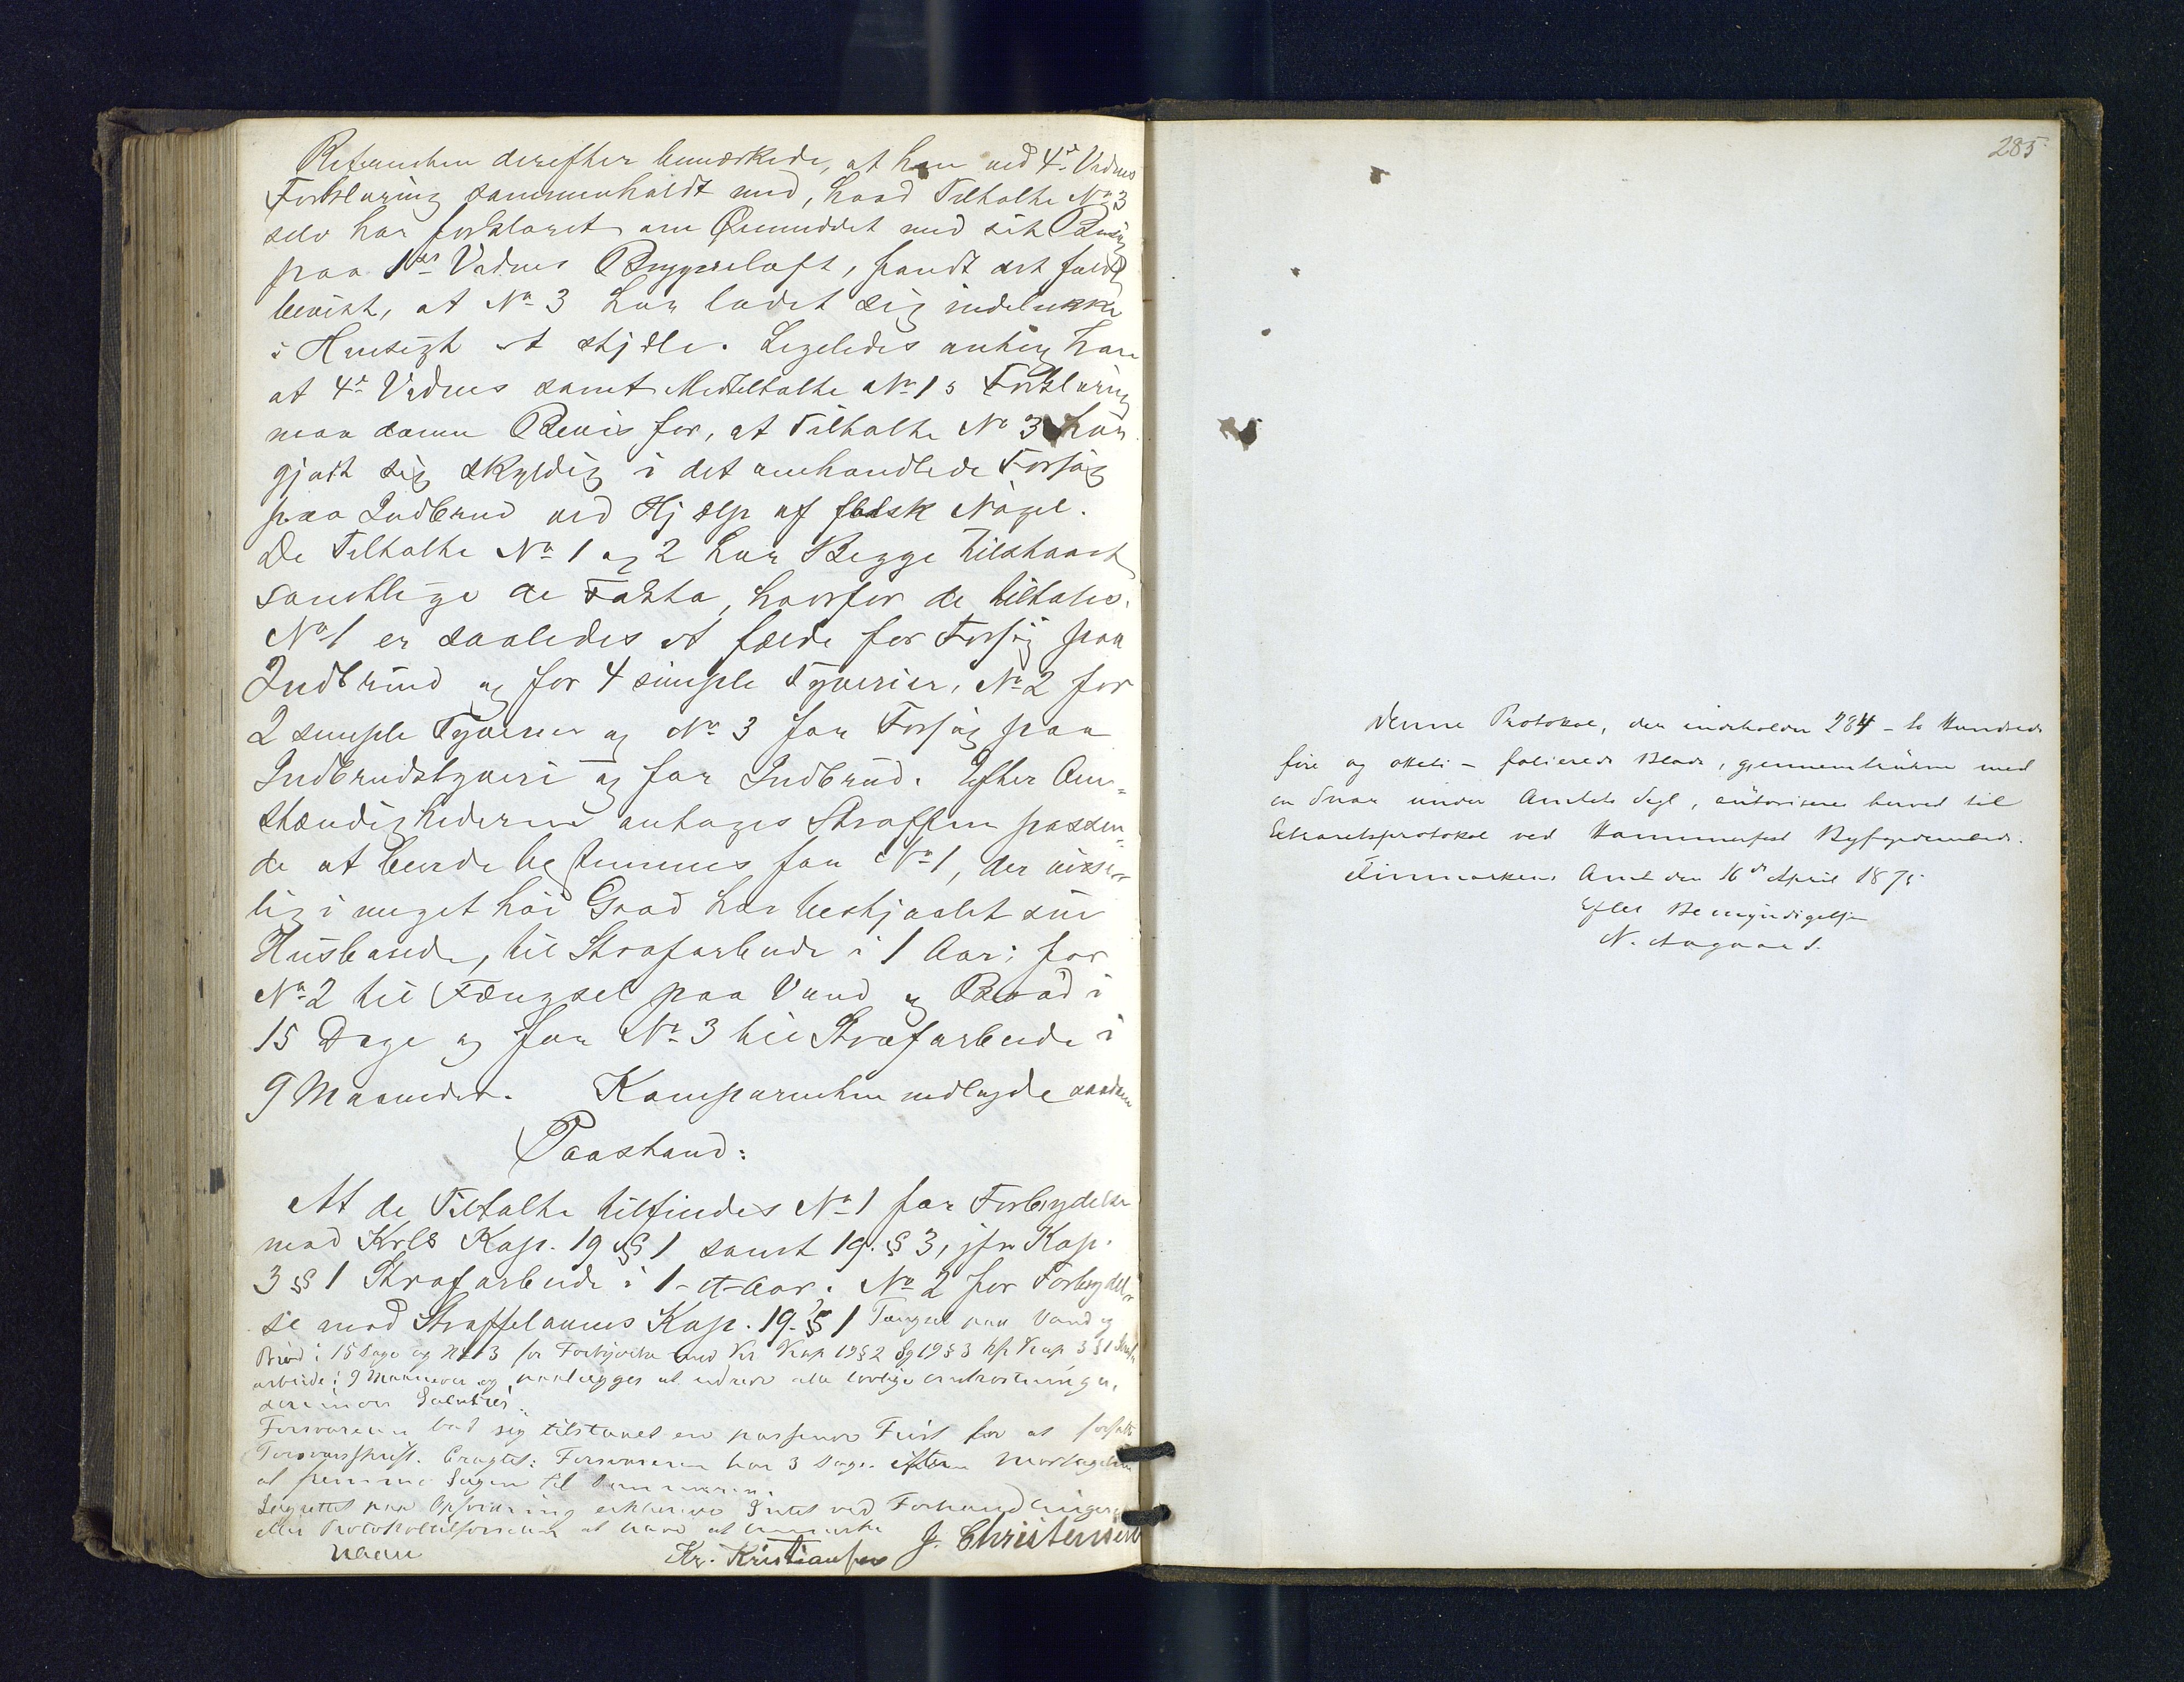 derefter bemærkede, at han ved 4de Vidnes
Forklaring sammenholdt med, hvad Tiltalte No 3
selv har forklaret om Øiemeddet med sit Besøg
paa 1ste Vidnes Bryggeloft, fandt det fuldt
bevist, at No 3 har ladet sig indelukke
i Hensigt at stjæle. Ligeledes antog han
at 4de Vidnes samt Medtiltalte No 1s Forklaring
maa danne Bevis for, at Tiltalte No 3 har
gjort sig skyldig i det omhandlede Forsøg
paa Indbrud ved Hjælp af falsk Nøgel.
De Tiltalte No 1 og 2 har Begge tilstaaet
samtlige de Fakta, hvorfor de tiltales.
No 1 er saaledes at fælde for Forsøg paa
Indbrud og for 4 simple Tyverier, No 2 for
2 simple Tyverier og No 3 for Forsøg paa
Indbrudstyveri og for Indbrud. Efter Om-
stændighederne antages Straffen passen-
de at burde bestemmes for No 1, der
i meget høi Grad har bestjaalet sin
Husbonde, til Strafarbeide i 1 Aar; for
No 2 til Fængsel paa Vand og Brød i
15 Dage og for No 3 til Strafarbeide i
9 Maaneder. Komparenten nedlagde saadan
Paastand:
At de Tiltalte tilfindes No 1 for Forbrydelse
mod Krls Kap. 19 § 1 samt 19. § 3, jfr Kap.
3 § 1 Strafarbeide i 1 - et - Aar. No 2 for Forbrydel-
se mod Straffelovens Kap. 19. § 1 Fængsel paa Vand og
Brød i 15 Dage og No 3 for Forbrydelse mod Kr Kap 19 § 2 og 19 § 3 kfr Kap 3 § 1 Straf-
arbeide i 9 Maaneder og paalægges at udrede alle lovlige Omkostninger,
derunder Salairer.
Forsvareren bad sig tilstaaet en passende Frist for at forfatte
Forsvarsskrift. Eragtet: Forsvareren har 3 Dage efter Modtagelsen
at fremme Sagen til Dommeren.
Lagrettet paa Opfordring erklærede Intet ved Forhandlingerne
eller Protokoltilførselen at have at bemærke
Kr. Kristiansen J. Christensen
285
Denne Protokol, der indeholder 284 - to Hundrede
fire og otteti - folierede Blade, gjennemtrukne med
en Snor under Amtets Segl, autoriseres herved til
Extraretsprotokol ved Hammerfest Byfogedembede.
Finmarkens Amt den 16de April 1875
Efter Bemyndigelse
N. Aagaard.